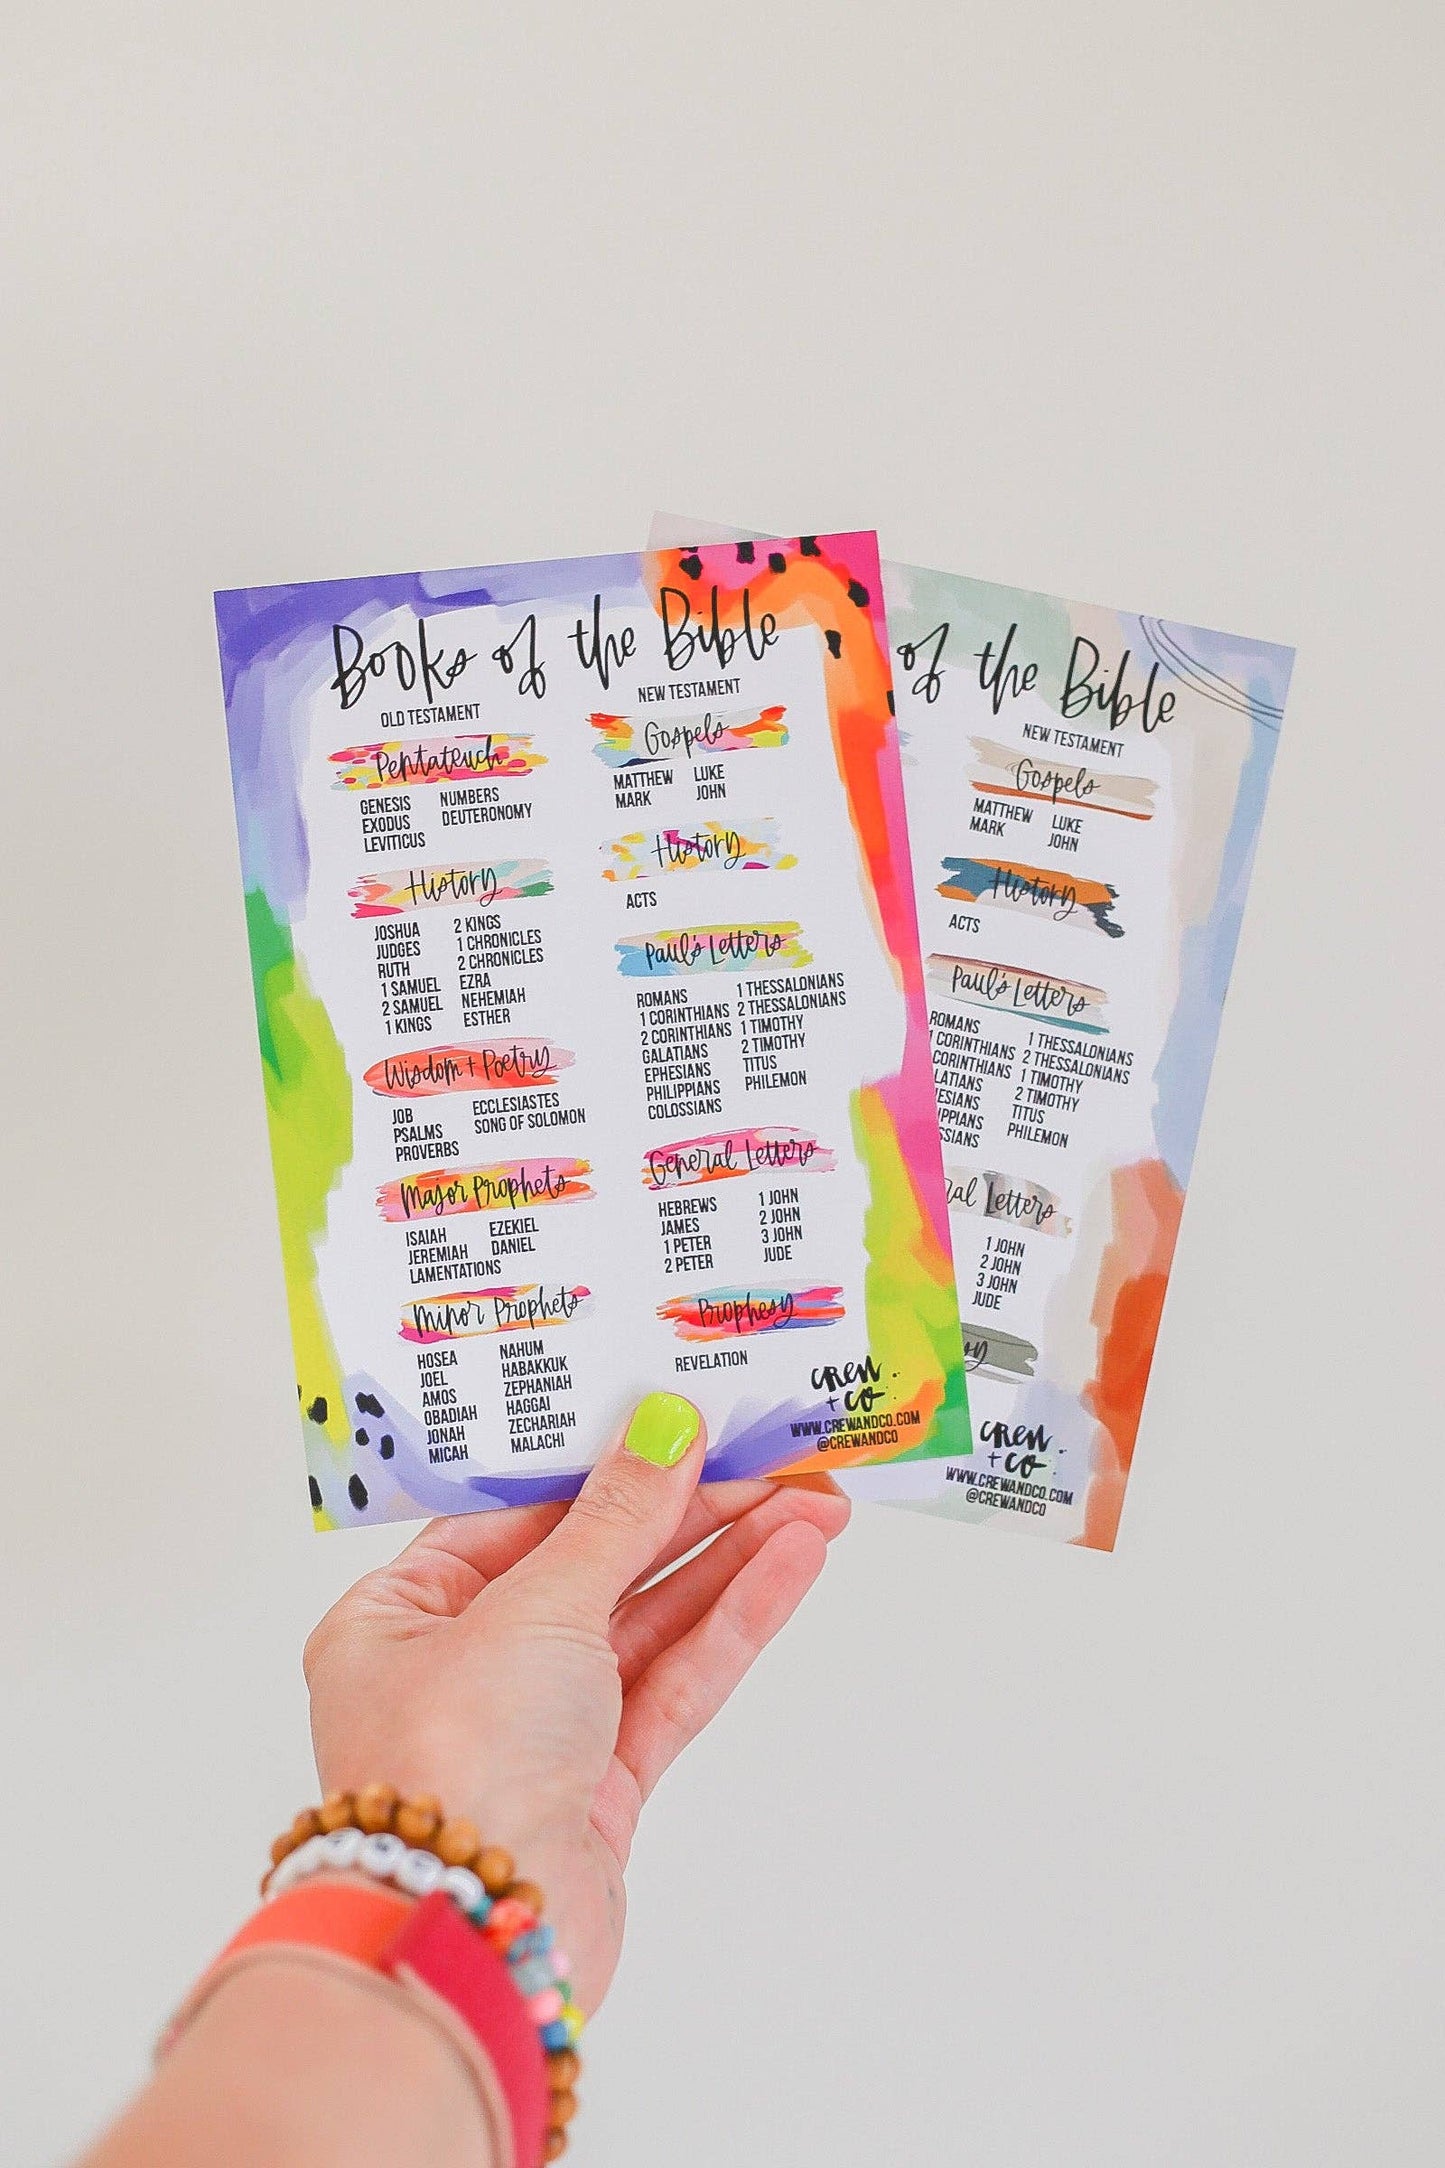 Books of the Bible
OLD TESTAMENT
Pentateuch
GENESIS NUMBERS
EXODUS DEUTERONOMY
LEVITICUS
History
JOSHUA 2 KINGS
JUDGES 1 CHRONICLES
RUTH 2 CHRONICLES
1 SAMUEL EZRA
2 SAMUEL NEHEMIAH
1 KINGS ESTHER
Wisdom + Poetry
JOB ECCLESIASTES
PSALMS SONG OF SOLOMON
PROVERBS
Major Prophets
ISAIAH EZEKIEL
JEREMIAH DANIEL
LAMENTATIONS
Minor Prophets
HOSEA NAHUM
JOEL HABAKKUK
AMOS ZEPHANIAH
OBADIAH HAGGAI
JONAH ZECHARIAH
MICAH MALACHI
NEW TESTAMENT
Gospels
MATTHEW LUKE
MARK JOHN
History
ACTS
Paul's Letters
ROMANS 1 THESSALONIANS
1 CORINTHIANS 2 THESSALONIANS
2 CORINTHIANS 1 TIMOTHY
GALATIANS 2 TIMOTHY
EPHESIANS TITUS
PHILIPPIANS PHILEMON
COLOSSIANS
General Letters
HEBREWS 1 JOHN
JAMES 2 JOHN
1 PETER 3 JOHN
2 PETER JUDE
Prophesy
REVELATION
crew
+ co.
WWW.CREWANDCO.COM
@CREWANDCO
of the Bible
NEW TESTAMENT
Gospels
MATTHEW LUKE
MARK JOHN
History
ACTS
Paul's Letters
ROMANS 1 THESSALONIANS
1 CORINTHIANS 2 THESSALONIANS
CORINTHIANS 1 TIMOTHY
LATIANS 2 TIMOTHY
ESIANS TITUS
IPPIANS PHILEMON
SSIANS
ral Letters
1 JOHN
2 JOHN
3 JOHN
JUDE
sy
crew
+ co.
WWW.CREWANDCO.COM
@CREWANDCO